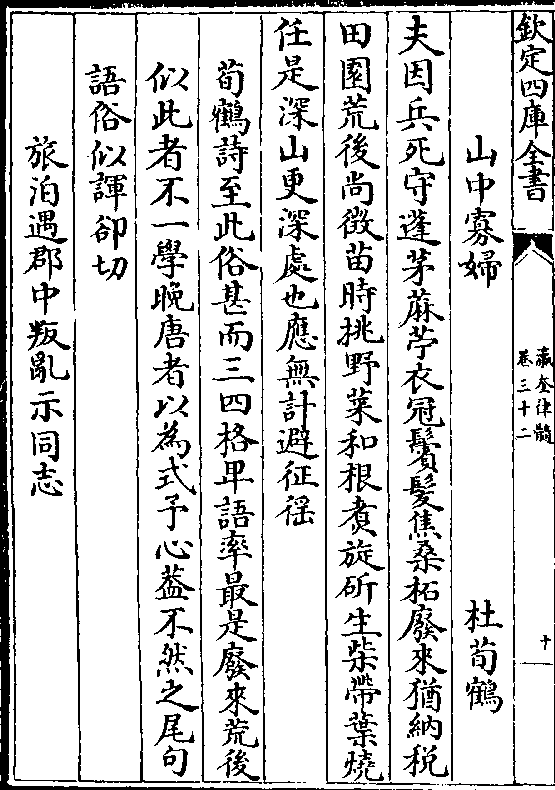 欽定四庫全書
瀛奎律髓
卷三十二
十
山中寡婦　杜荀鶴
夫因兵死守蓬茅蔴苧衣冠鬢髮焦桑柘廢來猶納税
田園荒後尚徴苗時挑野菜和根煑旋斫生柴帶葉燒
任是深山更深處也應無計避征徭
荀鶴詩至此俗甚而三四格卑語率最是廢來荒後
似此者不一學晚唐者以為式予心葢不然之尾句
語俗似諢卻切
旅泊遇郡中叛亂示同志